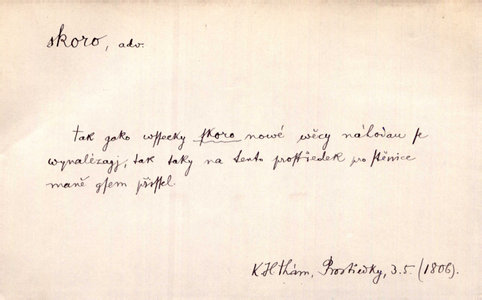 skoro, adv.
tak gako wssecky skoro nowé wěcy náhodau se
wynalézagj, tak taky na tento prostředek pro štěnice
maně gsem přissel.
K Thám, Prostředky, 3.5. (1806).